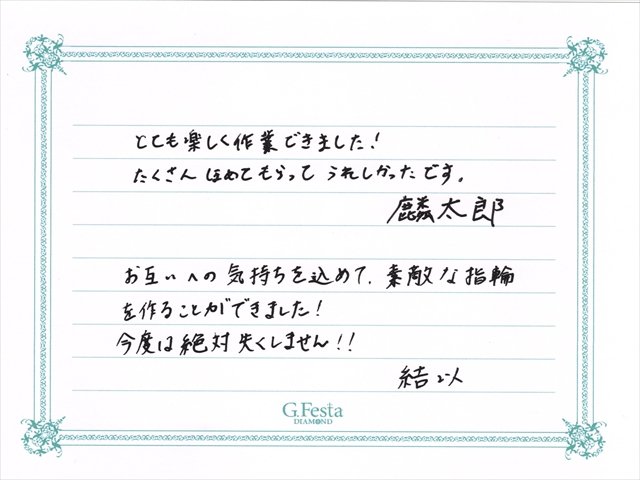 とても楽しく作業できました!
たくさんほめてもらってうれしかったです。
麟太郎
お互いへの気持ちを込めて、素敵な指輪
を作ることができました!
今度は絶対失くしません!!
結以
G.Festa
DIAMOND